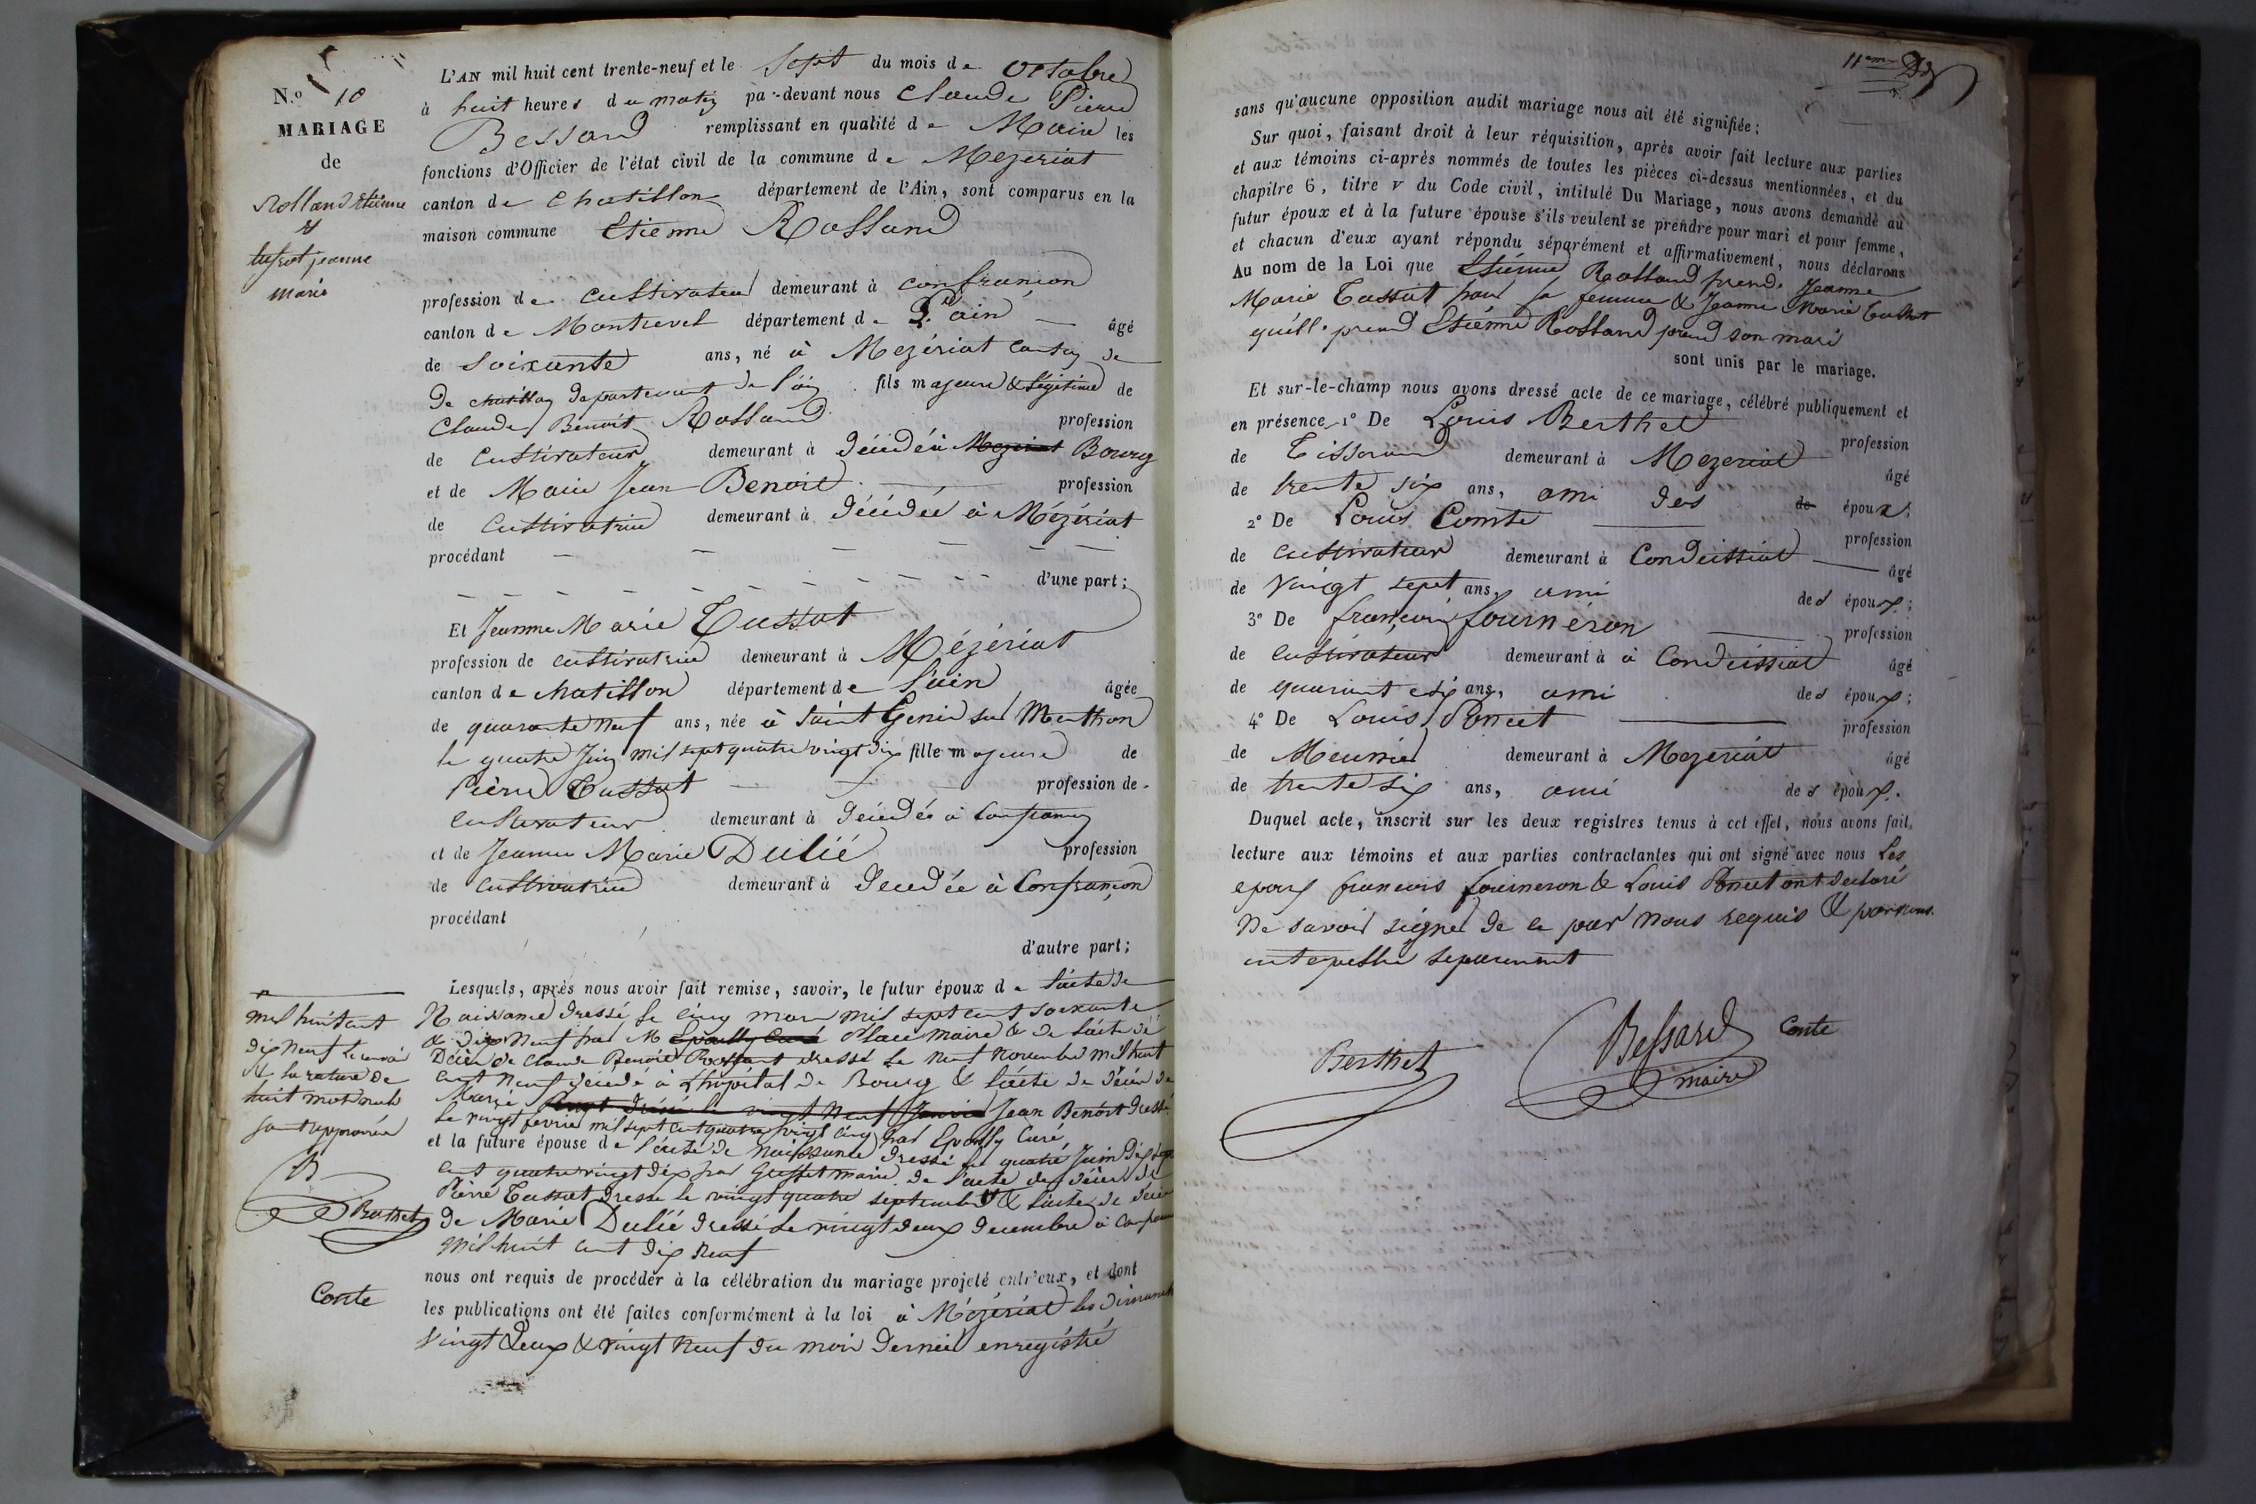 N.o 10
MARIAGE
de
Rolland Etienne
&
tussut jeanne
marie
L'AN mil huit cent trente-neuf et le Sept du mois de Octobre
à huit heures du matin par-devant nous Claude Pierre
Bessard remplissant en qualité de Maire les
fonctions d'Officier de l'état civil de la commune de Mezeriat
canton de Chatillon département de l'Ain, sont comparus en la
maison commune Etienne Rolland
profession de cultivateur demeurant à confrançon
canton de Montrevel département de L'ain âgé
de Soixante ans, né à Mezériat canton de
de chatillon departement de l'ain fils majeure & légitime de
Claude Benoit Rolland profession
de Cultivateur demeurant à décédé à Mezeriat Bourg
et de Marie Jean Benoit profession
de Cultivatrice demeurant à décédée à Mézériat
procédant
d'une part;
Et Jeanne Marie Tussut
profession de cultivatrice demeurant à Mézériat
canton de chatillon département de l'ain âgée
de quarante neuf ans, née à Saint Genis sur Menthon
le quatre Juin mil sept quatre vingt dix fille majeure de
Pierre Tussut profession de
Cultivateur demeurant à décédé à Confrançon
et de Jeanne Marie Dulié profession
de Cultivatrice demeurant à décédée à Confrançon
procédant
d'autre part;
Lesquels, après nous avoir fait remise, savoir, le futur époux de l'acte de
Naissance dressé le cinq mars mil sept cent soixante
& dix Neuf par M Epailly Curé Place maire & de l'acte de
Décès de Claude Benoit Rolland dressé le neuf novembre mil huit
cent neuf décédé à L'hôpital de Bourg & l'acte de décès de
Marie dressé le vingt neuf Janvier Jean Benoit dressé
le vingt fevrier mil sept cent quatre vingt cinq par Epailly Curé,
et la future épouse de l'acte de naissance dressé le quatre Juin dix sept
cent quatre vingt dix par maire de l'acte de décès de
Pierre Tussut dressé le vingt quatre septembre & l'acte de décès
de Marie Dulié dressé le vingt deux decembre à
mil huit cent dix neuf
nous ont requis de procéder à la célébration du mariage projeté entr'eux, et dont
les publications ont été faites conformément à la loi à Mézériat les dimanche
Vingt deux & vingt Neuf du mois dernier enregistré
mil huit cent
dix neuf le renvoi
& la rature de
huit mots nuls
sont approuvée
B
Berthet
Conte
sans qu'aucune opposition audit mariage nous ait été signifiée:
Sur quoi, faisant droit à leur réquisition, après avoir fait lecture aux parties
et aux témoins ci-après nommés de toutes les pièces ci-dessus mentionnées, et du
chapitre 6, titre v du Code civil, intitulé Du Mariage, nous avons demandé au
futur époux et à la future épouse s'ils veulent se prendre pour mari et pour femme,
et chacun d'eux ayant répondu séparément et affirmativement, nous déclarons
Au nom de la Loi que Etiénne Rolland prend Jeanne
Marie Tussut pour sa femme & Jeanne Marie Tussut
qu'elle prend Etiénne Rolland pour son mari
sont unis par le mariage.
Et sur-le-champ nous avons dressé acte de ce mariage, célébré publiquement et
en présence 1° De Louis Berthet
profession
de Tisserand demeurant à Mezeriat âgé
de trente six ans, ami des de époux;
2° De Louis Comte profession
de cultivateur demeurant à Condeissiat âgé
de Vingt sept ans, ami des époux;
3° De françois fournéron profession
de Cultivateur demeurant à à Condeissiat âgé
de quarant six ans, ami des époux;
4° De Louis Poncet profession
de Meunier demeurant à Mezeriat âgé
de trente six ans, ami des époux.
Duquel acte, inscrit sur les deux registres tenus à cet effet, nous avons fait
lecture aux témoins et aux parties contractantes qui ont signé avec nous Les
epoux francois fourneron & Louis Poncet ont declaré
Ne savoir signer de ce par nous requis &
separement
Berthet
Bessard
maire
Conte